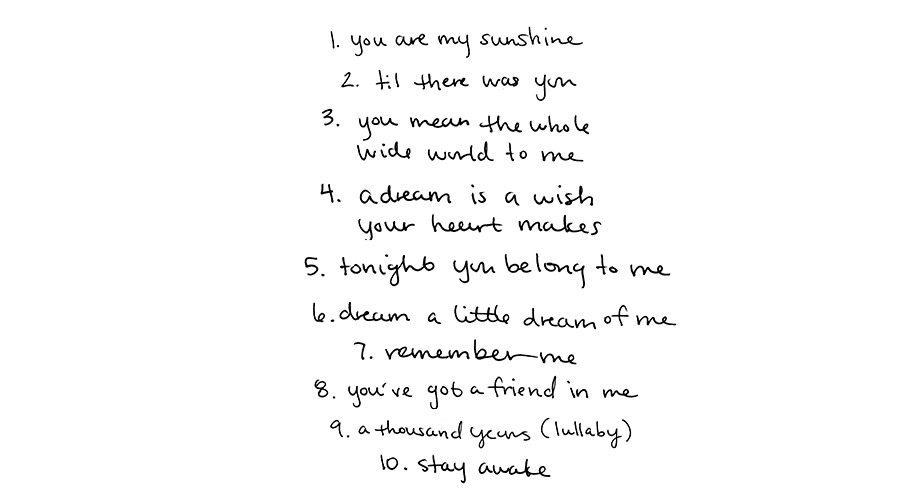 1. you are my sunshine
2. til there was you
3. you mean the whole
wide world to me
4. a dream is a wish
your heart makes
5. tonight you belong to me
6. dream a little dream of me
7. remember me
8. you've got a friend in me
9. a thousand years (lullaby)
10. stay awake